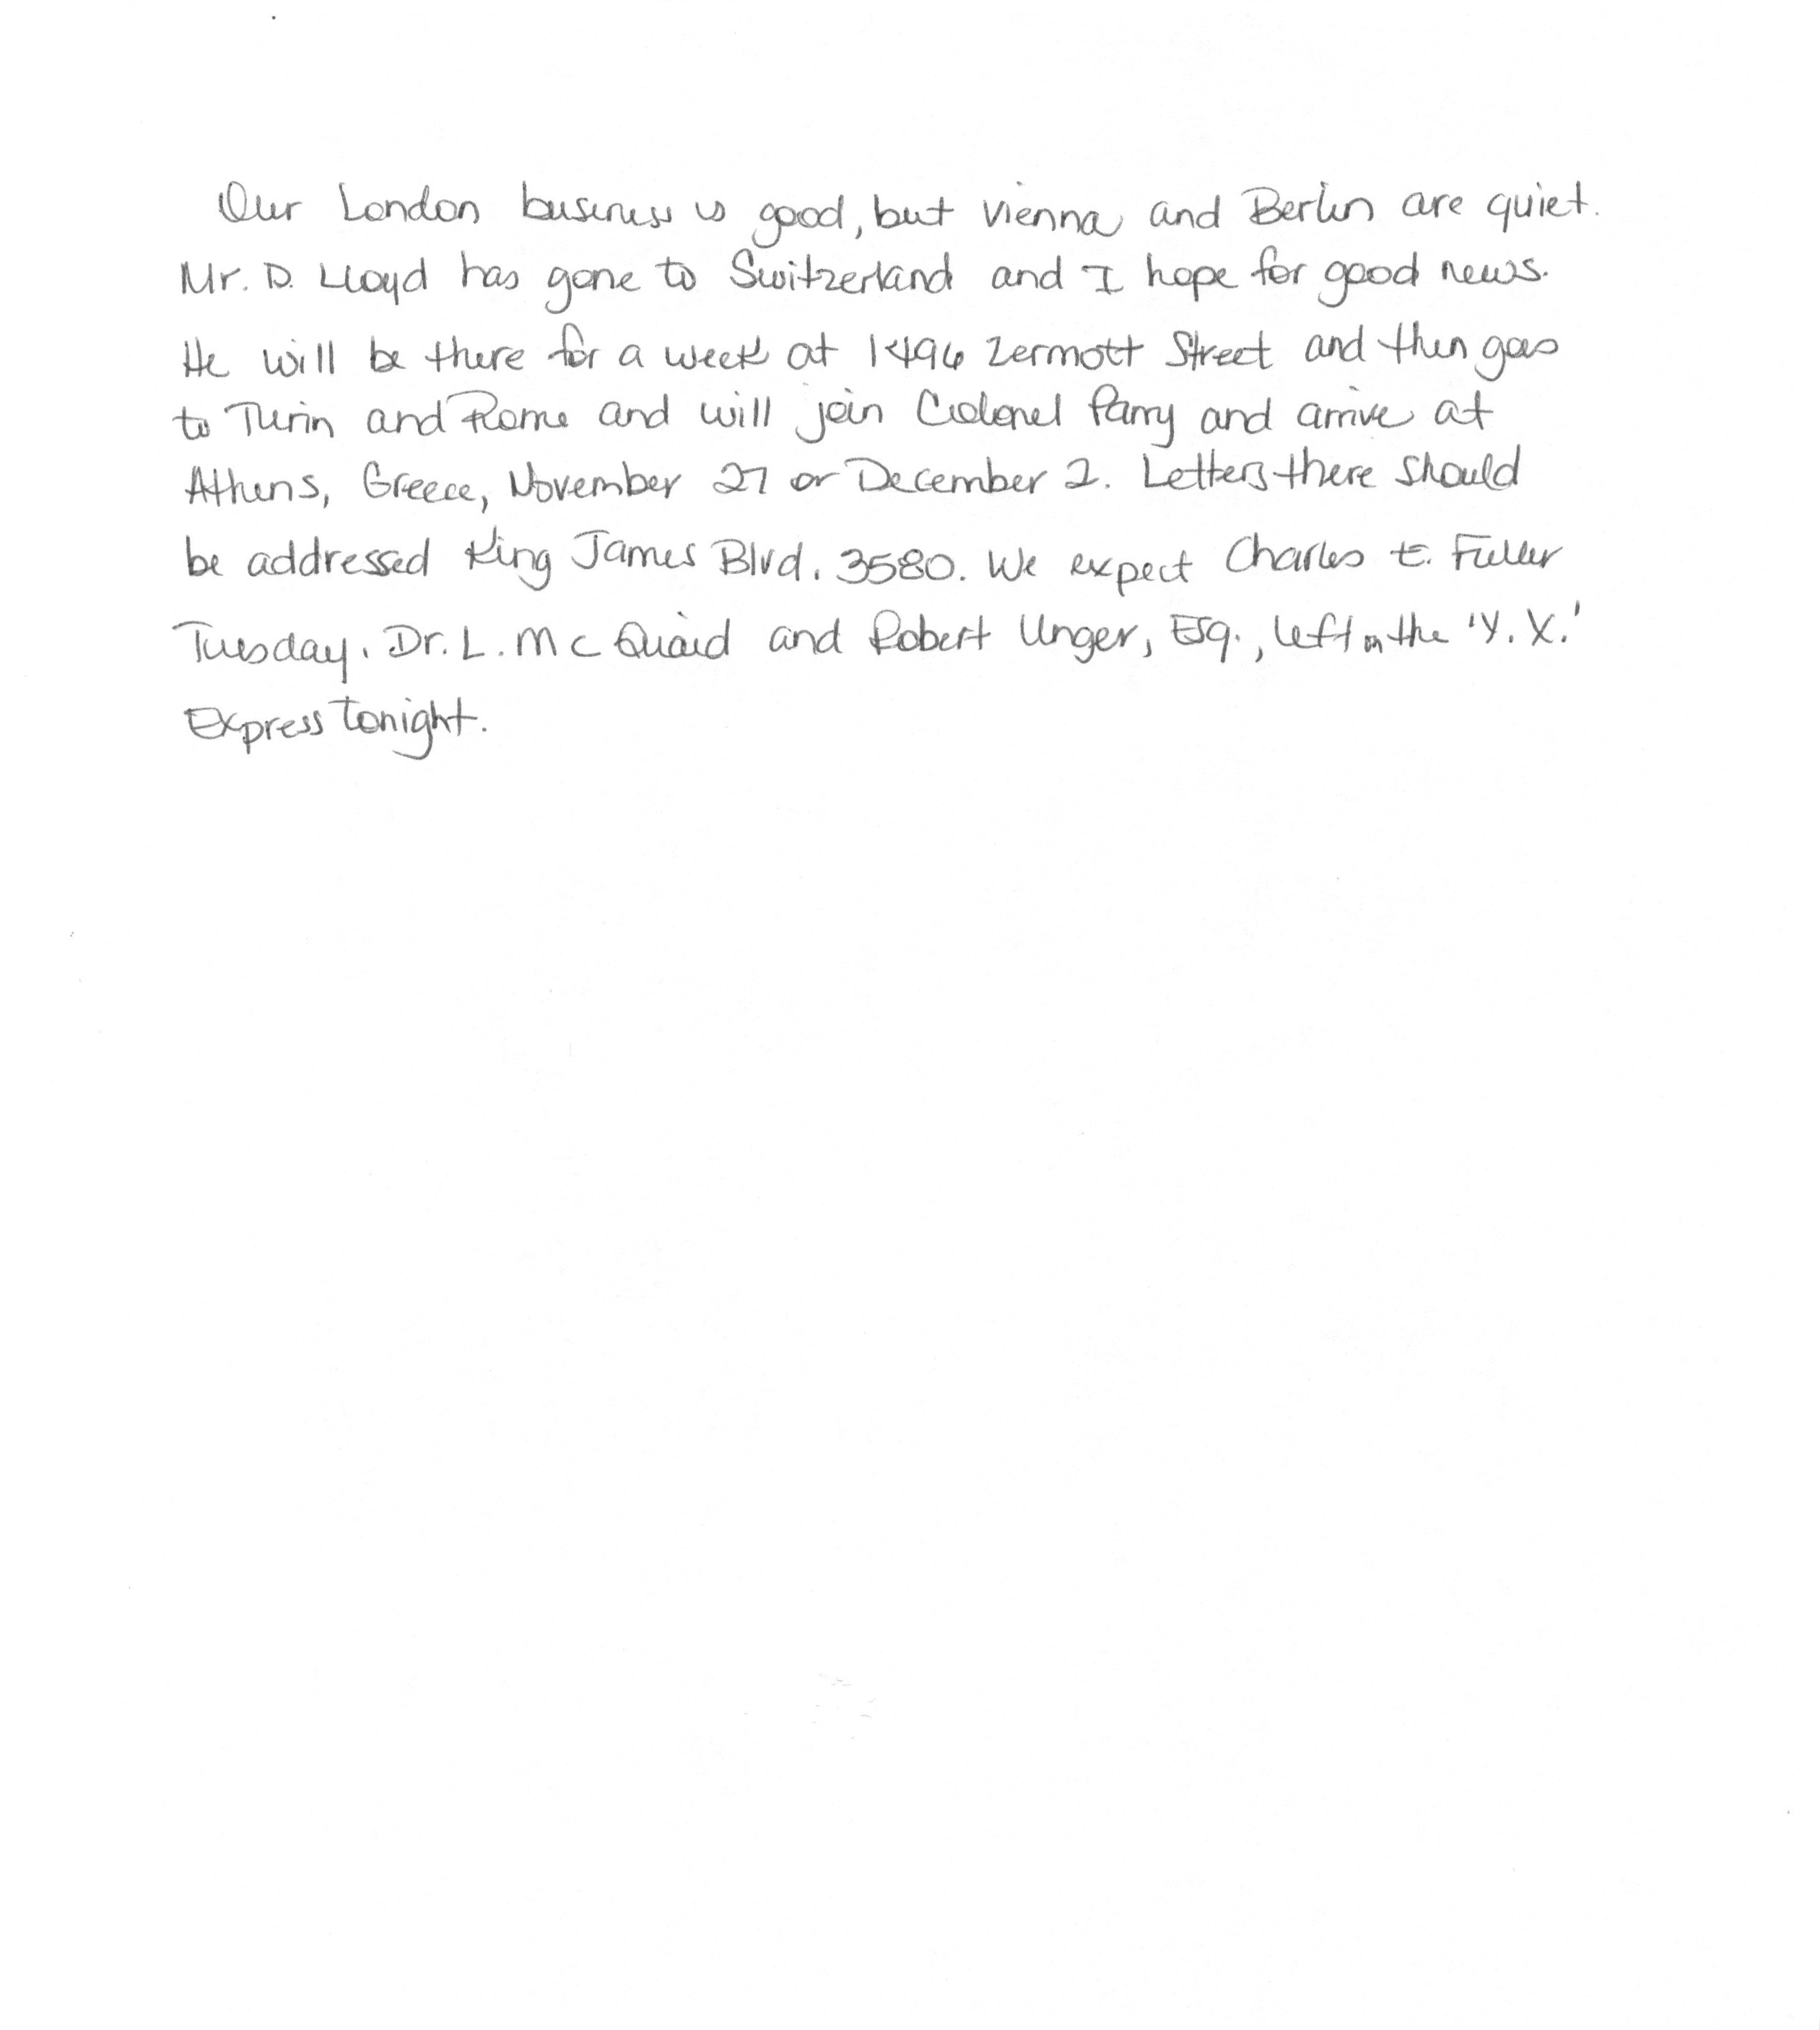 Our London business is good, but Vienna and Berlin are quiet.
Mr. D. Lloyd has gone to Switzerland and I hope for good news.
He will be there for a week at 1496 Zermott Street and then goes
to Turin and Rome and will join Colonel Parry and arrive at
Athens, Greece, November 27 or December 2. Letters there should
be addressed King James Blvd. 3580. We expect Charles E. Fuller
Tuesday. Dr. L. Mc Quaid and Robert Unger, Esq., left on the 'Y. X.'
Express tonight.